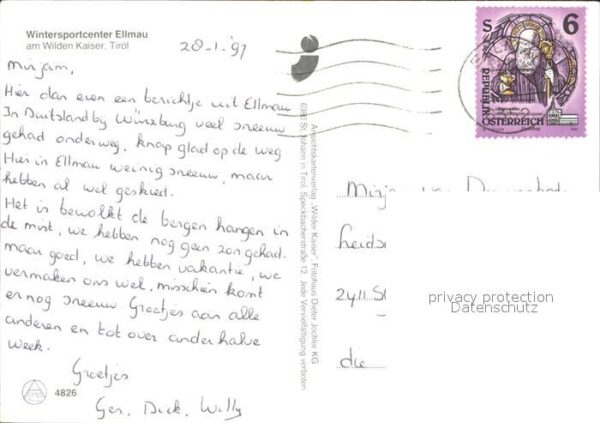 Wintersportcenter Ellmau
am Wilden Kaiser, Tirol
28-1-'97
Mirjam,
Hier dan even een berichtje uit Ellmau
In Duitsland by Würzburg veel sneeuw
gehad onderweg, knap glad op de weg
Hier in Ellmau weinig sneeuw, maar
hebben al wel geskied.
Het is bewolkt de bergen hangen in
de mist, we hebben nog geen zon gehad.
maar goed, we hebben vakantie, we
vermaken ons wel, misschien komt
er nog sneeuw. Groetjes aan alle
anderen en tot over anderhalve
week.
Groetjes
Ger, Dick, Willy
4826
Ansichtskartenverlag „Wilder Kaiser", Fotohaus Dieter Jöchler KG
6380 St. Johann in Tirol, Speckbacherstraße 12. Jede Vervielfältigung verboten
S 6
REPUBLIK
ÖSTERREICH
Mirjam
Leids
2411
die
privacy protection
Datenschutz